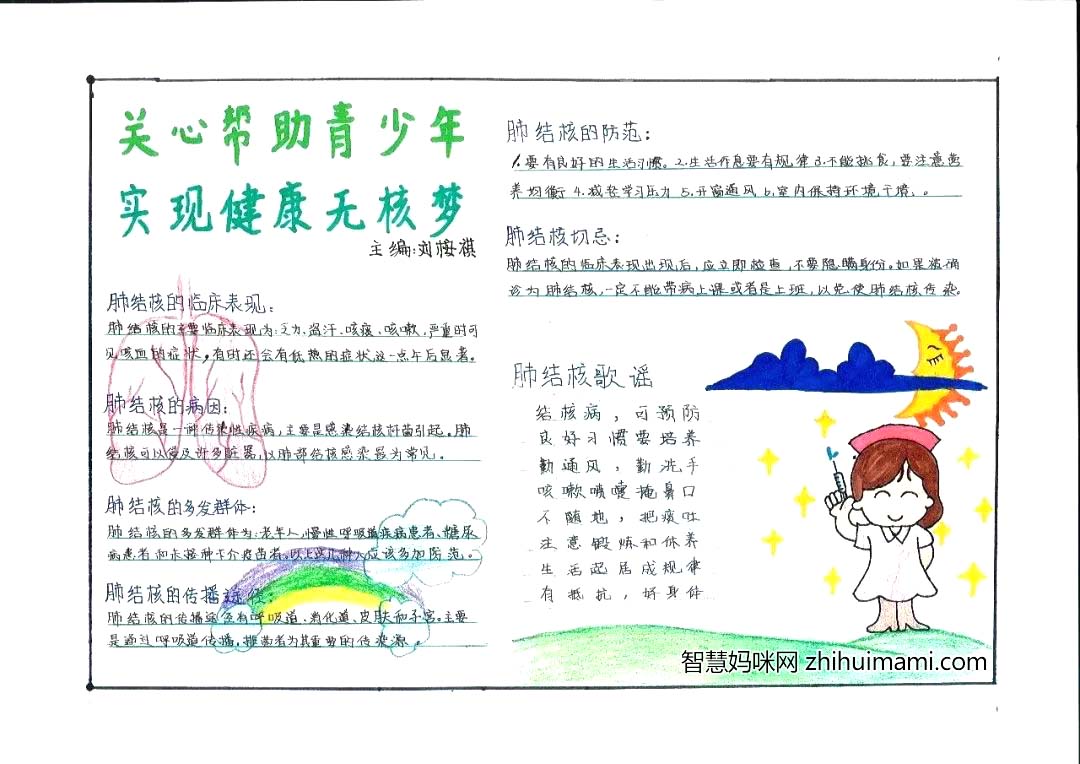 关心帮助青少年
实现健康无核梦
主编:刘梅祺
肺结核的临床表现:
肺结核的主要临床表现为:乏力、盗汗、咳痰、咳嗽、严重时可
见咳血的症状,有时还会有低热的症状这一点午后显著。
肺结核的病因:
肺结核是一种传染性疾病,主要是感染结核杆菌引起。肺
结核可以累及许多脏器,以肺部结核感染最为常见。
肺结核的多发群体:
肺结核的多发群体为:老年人、慢性呼吸道疾病患者、糖尿
病患者和未接种卡介疫苗者。以上这几种人应该多加防范。
肺结核的传播途径:
肺结核的传播途径有呼吸道、消化道、皮肤和子宫。主要
是通过呼吸道传播,排菌者为其重要的传染源。
肺结核的防范:
1.要有良好的生活习惯。2.生活作息要有规律3.不能挑食,要注意营
养均衡 4.减轻学习压力 5.开窗通风 6.室内保持环境干燥。
肺结核切忌:
肺结核的临床表现出现后,应立即检查,不要隐瞒身份。如果被确
诊为肺结核,一定不能带病上课或者是上班,以免使肺结核传染。
肺结核歌谣
结核病,可预防
良好习惯要培养
勤通风,勤洗手
咳嗽喷嚏掩鼻口
不随地,把痰吐
注意锻炼和休养
生活起居成规律
有抵抗,好身体
智慧妈咪网 zhihuimami.com